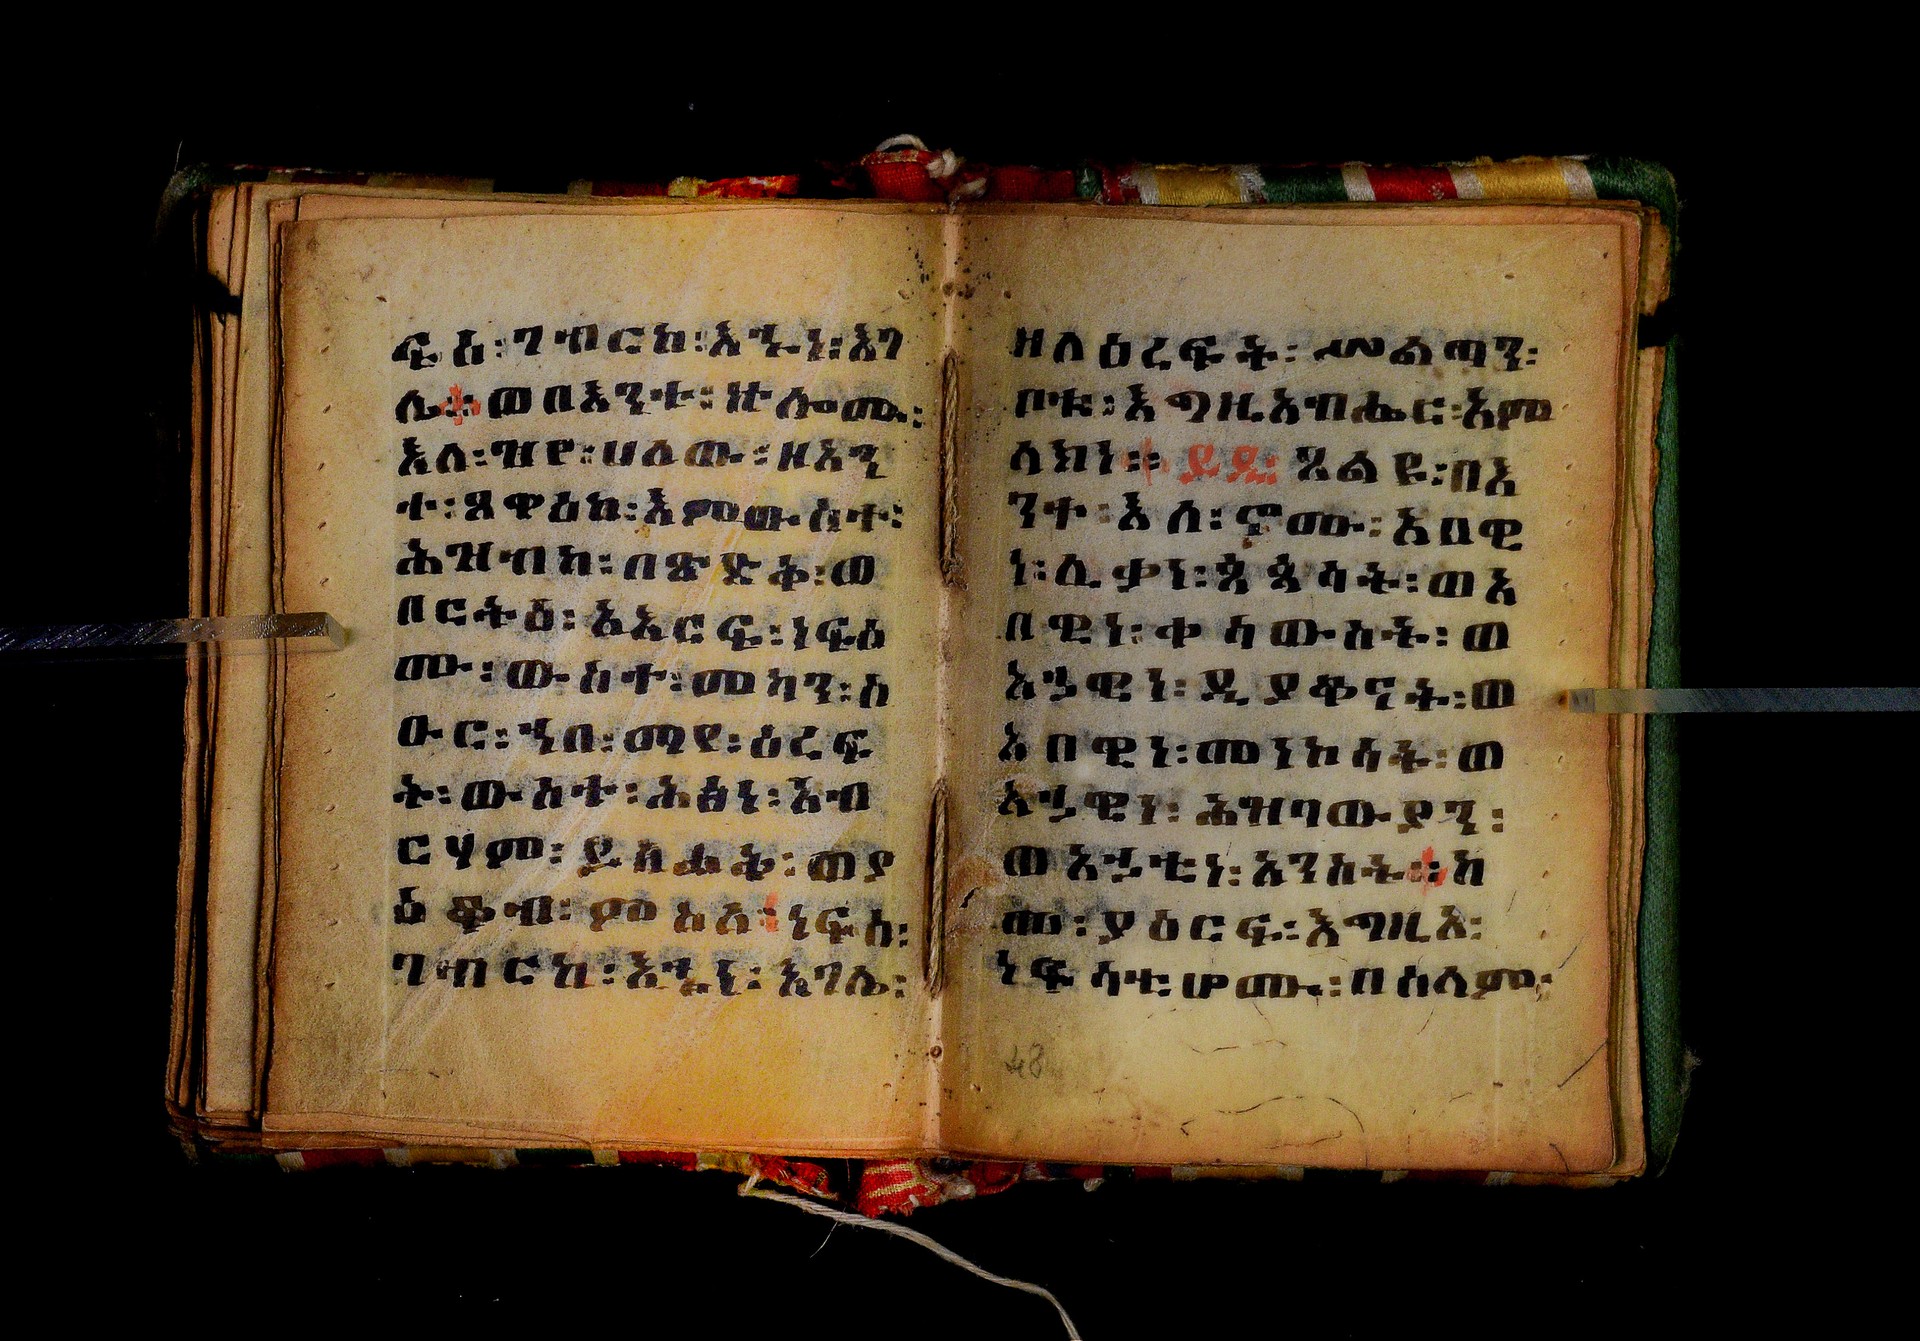 ፍስ፡ ገብርከ፡ እኁነ፡ እገ
ሌ። ወበእንተ፡ ኵሎሙ፡
እለ፡ ዝየ፡ ሀለው፡ ዘእን
ተ፡ ጸዋዕከ፡ እምውስተ፡
ሕዝብከ፡ በጽድቅ፡ ወ
በርትዕ፡ አእርፍ፡ ነፍሰ
ሙ፡ ውስተ፡ መካን፡ ሰ
ዑር፡ ኀበ፡ ማየ፡ ዕረፍ
ት፡ ውስተ፡ ሕፅነ፡ አብ
ርሃም፡ ይስሐቅ፡ ወያ
ዕቆብ፡ ምስለ፡ ነፍሰ፡
ገብርከ፡ እኁነ፡ እገሌ፡
ዘለዕረፍት፡ ሥልጣን፡
ቦቱ፡ እግዚአብሔር፡ አም
ላክነ። ይዲ፡ ጸልዩ፡ በእ
ንተ፡ እለ፡ ኖሙ፡ አበዊ
ነ፡ ሊቃነ፡ ጳጳሳት፡ ወአ
በዊነ፡ ቀሳውስት፡ ወ
አኃዊነ፡ ዲያቆናት፡ ወ
አበዊነ፡ መነኮሳት፡ ወ
አኃዊነ፡ ሕዝባውያን፡
ወአኃቲነ፡ አንስት። ከ
መ፡ ያዕርፍ፡ እግዚአ፡
ነፍሳቲሆሙ፡ በሰላም፡
48